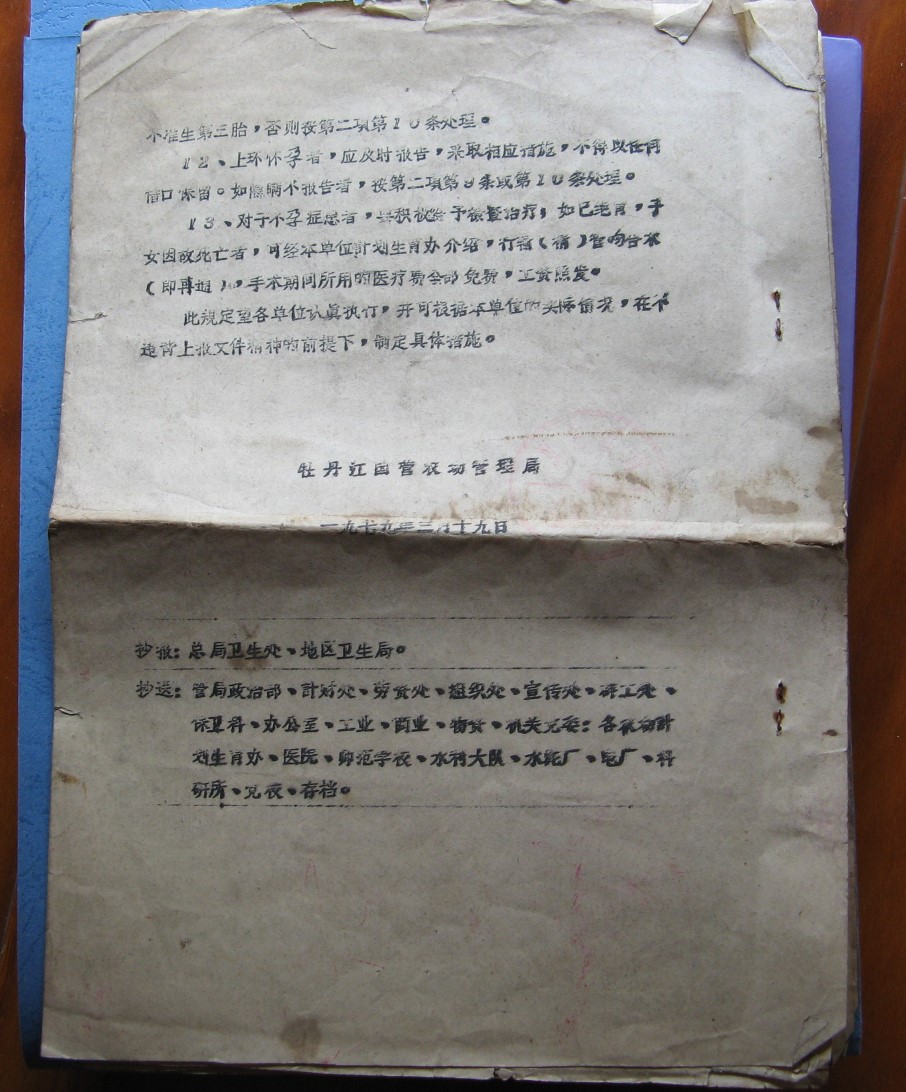 不准生第三胎，否则按第二项第10条处理。
12、上环怀孕者，应及时报告，采取相应措施，不得以任何
借口保留。如隐瞒不报告者，按第二项第9条或第10条处理。
13、对于不孕症患者，要积极给予检查治疗；如已绝育，子
女因故死亡者，可经本单位计划生育办介绍，行输（精）管吻合术
（即再通），手术期间所用的医疗费全部免费，工资照发。
此规定望各单位认真执行，并可根据本单位的实际情况，在不
违背上级文件精神的前提下，制定具体措施。
牡丹江国营农场管理局
一九七九年三月十九日
抄报：总局卫生处、地区卫生局。
抄送：管局政治部、计财处、劳资处、组织处、宣传处、
保卫科、办公室、工业、商业、物资、机关党委；各农场计
划生育办、医院、师范学校、水利大队、水泥厂、电厂、科
研所、存档。